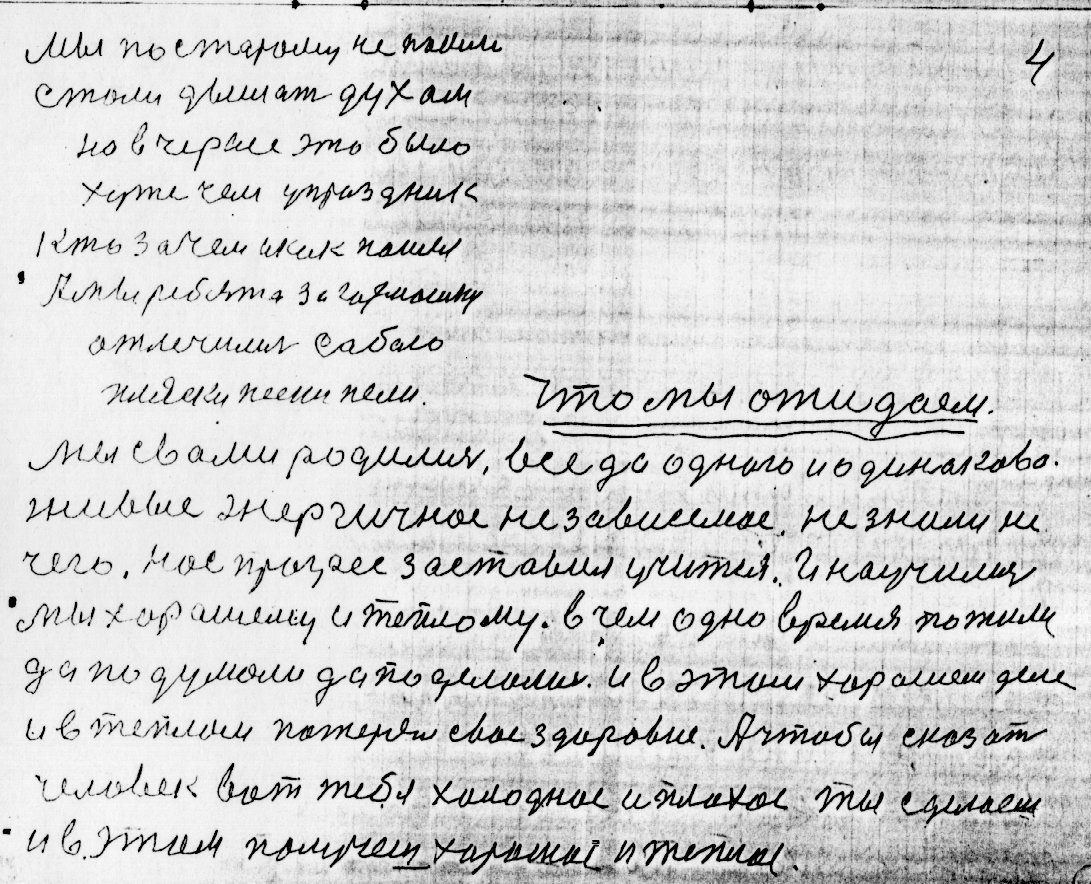 4
Мы по старому не пошли
стали дышат духам
но вчерне это было
хуже чем упраздник
Кто зачем и как пошли
ребята за гармошку
отличилися с бало
пляски песни пели.
Что мы ожидаем.
мы свами родилис, все до одного и одинаково.
живые энергичное независемое, не знали не
чего, нас прогрес заставил учится. И научилис
мы хорашему и теплому. в чем одно время пожили
да подумоли да поделоли. и в этом харошем деле
и в теплом потерял свое здоровие. А чтобы сказат
человек вот тебя холодное и плохое ты сделаеш
и в этом получеш харошое и теплое.